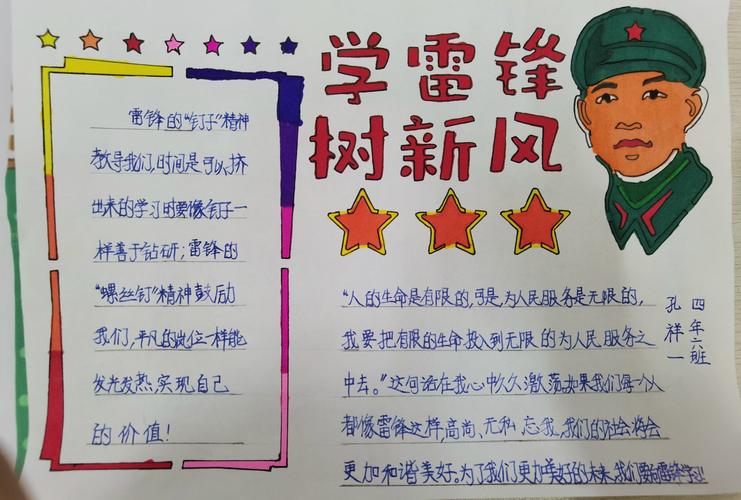 学雷锋
树新风
雷锋的“钉子”精神
教导我们，时间是可以挤
出来的学习时要像钉子一
样善于钻研；雷锋的
“螺丝钉”精神鼓励
我们，平凡的岗位一样能
发光发热，实现自己
的价值！
“人的生命是有限的，可是，为人民服务是无限的，
我要把有限的生命投入到无限的为人民服务之
中去。”这句话在我心中久久激荡，如果我们每个人
都像雷锋这样，高尚、无私、忘我，我们的社会将会
更加和谐美好。为了我们更加美好的未来，我们要向雷锋学习！
四年六班
孔祥一